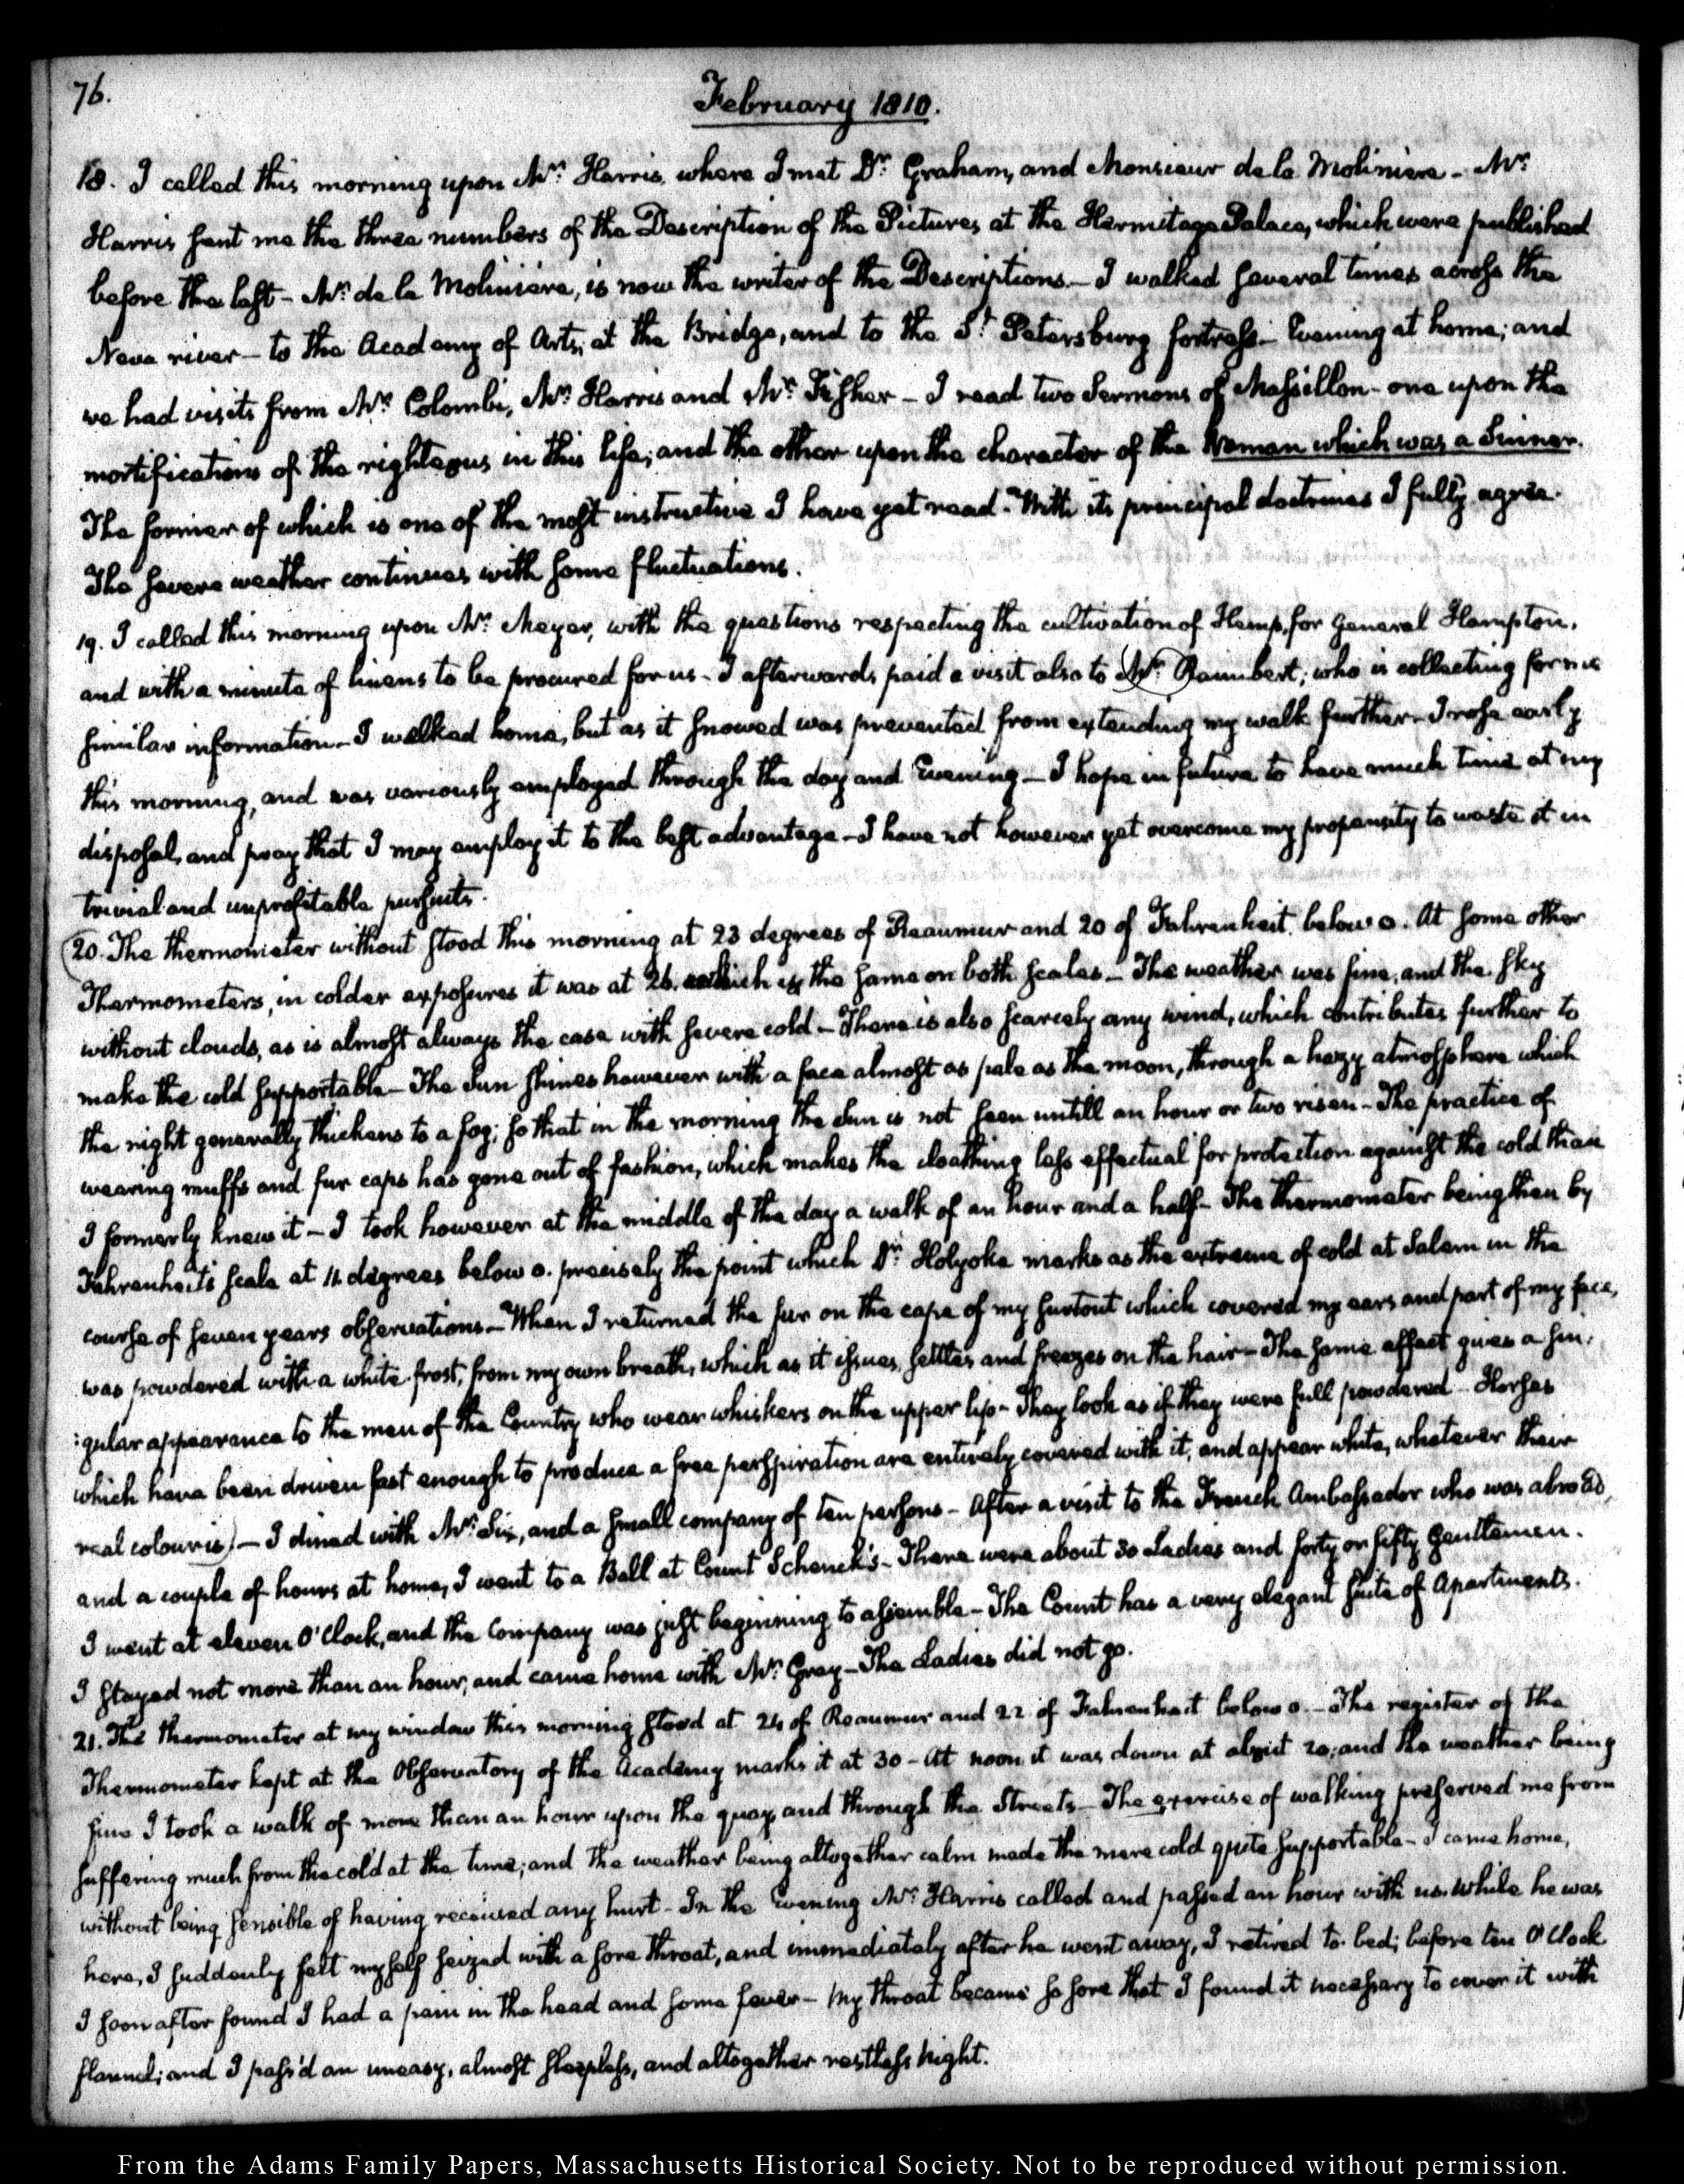 76.
February 1810.
18. I called this morning upon Mr. Harris, where I met Dr. Graham, and Monsieur de la Moliniere – Mr.
Harris sent me the three numbers of the Description of the Pictures at the Hermitage Palace, which were published
before the last – Mr. de la Moliniere, is now the writer of the Descriptions – I walked several times across the
Neva river – to the Academy of Arts, at the Bridge, and to the St. Petersburg fortress – Evening at home; and
we had visits from Mr. Colombi, Mr. Harris and Mr. Fisher – I read two Sermons of Massillon – one upon the
mortifications of the righteous in this life; and the other upon the character of the Woman which was a Sinner.
The former of which is one of the most instructive I have yet read. With its principal doctrines I fully agree.
The severe weather continues with some fluctuations.
19. I called this morning upon Mr. Meyer, with the questions respecting the cultivation of Hemp, for General Hampton,
and with a minute of linens to be procured for us – I afterwards paid a visit also to Mr. Raimbert; who is collecting for me
similar information – I walked home, but as it snowed was prevented from extending my walk further – I rose early
this morning, and was variously employed through the day and Evening – I hope in future to have much time at my
disposal, and pray that I may employ it to the best advantage – I have not however yet overcome my propensity to waste it in
trivial and unprofitable pursuits.
20. The thermometer without stood this morning at 23 degrees of Reaumur and 20 of Fahrenheit below 0. At some other
Thermometers, in colder exposures it was at 26. which is the same on both scales – The weather was fine, and the sky
without clouds, as is almost always the case with severe cold – There is also scarcely any wind, which contributes further to
make the cold supportable – The Sun shines however with a face almost as pale as the moon, through a hazy atmosphere which
the night generally thickens to a fog; so that in the morning the Sun is not seen untill an hour or two risen – The practice of
wearing muffs and fur caps has gone out of fashion, which makes the cloathing less effectual for protection against the cold than
I formerly knew it – I took however at the middle of the day a walk of an hour and a half – The thermometer being then by
Fahrenheit's scale at 11 degrees below 0. precisely the point which Dr. Holyoke marks as the extreme of cold at Salem in the
course of seven years observations – When I returned the fur on the cape of my surtout which covered my ears and part of my face,
was powdered with a white frost, from my own breath, which as it issues, settles and freezes on the hair – The same effect gives a sin:
:gular appearance to the men of the Country who wear whiskers on the upper lip – They look as if they were full powdered – Horses
which have been driven fast enough to produce a free perspiration are entirely covered with it, and appear white, whatever their
real colour is) – I dined with Mr. Six, and a small company of ten persons – After a visit to the French Ambassador who was abroad,
and a couple of hours at home, I went to a Ball at Count Schenck's – There were about 30 Ladies and forty or fifty Gentlemen.
I went at eleven O'Clock, and the Company was just beginning to assemble – The Count has a very elegant suite of Apartments.
I stayed not more than an hour, and came home with Mr. Gray – The Ladies did not go.
21. The thermometer at my window this morning stood at 24 of Reaumur and 22 of Fahrenheit below 0. – The register of the
Thermometer kept at the Observatory of the Academy marks it at 30 – At noon it was down at about 20; and the weather being
fine I took a walk of more than an hour upon the quay, and through the Streets – The exercise of walking preserved me from
suffering much from the cold at the time; and the weather being altogether calm made the mere cold quite supportable – I came home,
without being sensible of having received any hurt – In the Evening Mr. Harris called and passed an hour with us. While he was
here, I suddenly felt myself seized with a sore throat, and immediately after he went away, I retired to bed; before ten O'Clock
I soon after found I had a pain in the head and some fever – My throat became so sore that I found it necessary to cover it with
flannel; and I pass'd an uneasy, almost sleepless, and altogether restless night.
From the Adams Family Papers, Massachusetts Historical Society. Not to be reproduced without permission.